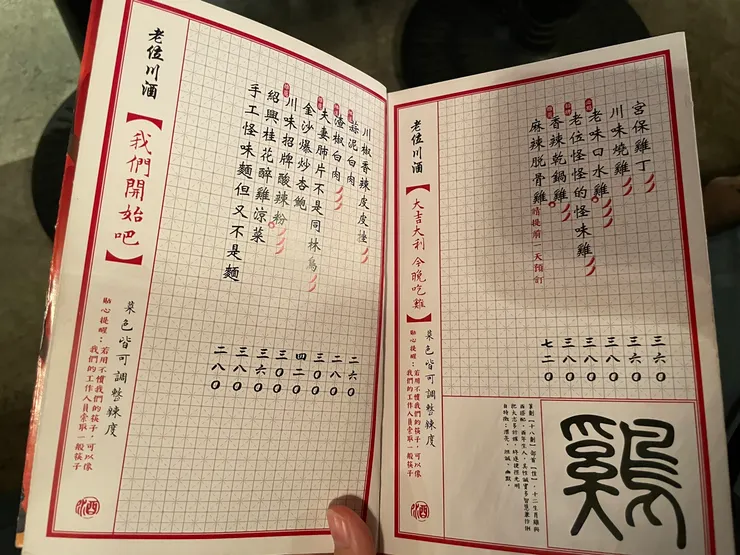 川椒香辣皮皮挫
蒜泥白肉
渣椒白肉
夫妻肺片不是同林鳥
金沙爆炒杏鮑
川味招牌酸辣粉
紹興桂花醉雞涼菜
手工怪味麵但又不是麵
二六0
二八0
三00
四二0
三00
三六0
三八0
二八0
老位川酒
【我們開始吧】
菜色皆可調整辣度
貼心提醒：若用不慣我們的筷子，可以像
我們的工作人員索取一般筷子
宮保雞丁
川味燒雞
老味口水雞
老位怪怪的怪味雞
香辣乾鍋雞
麻辣脱骨雞 請提前一天預訂
三六0
三六0
三六0
三八0
三八0
七二0
老位川酒
【大吉大利 今晚吃雞】
菜色皆可調整辣度
貼心提醒：若用不慣我們的筷子，可以像
我們的工作人員索取一般筷子
鷄